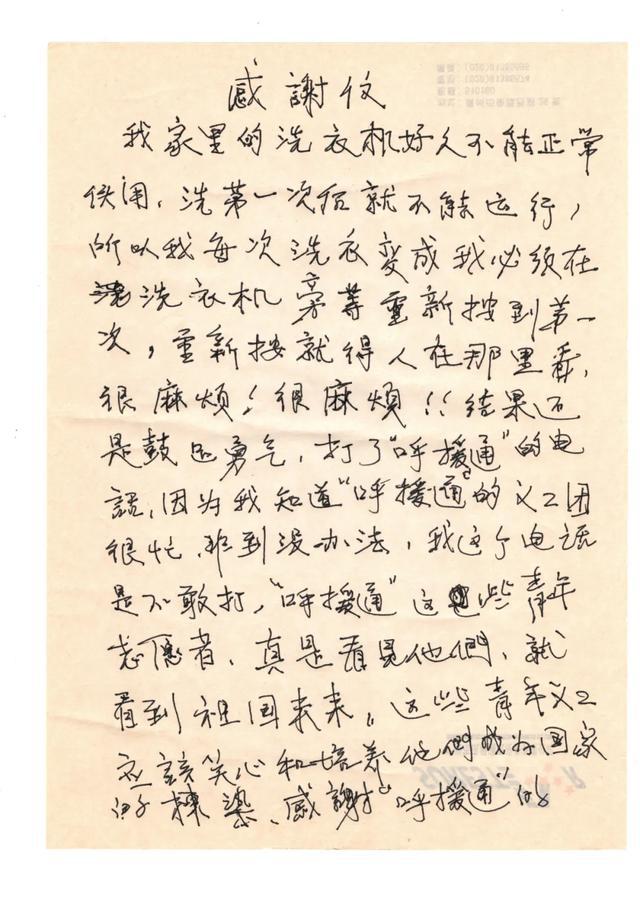 感謝仪
我家里的洗衣机好久不能正常
使用，洗第一次后就不能运行，
所以我每次洗衣变成我必须在
洗衣机旁等重新按到第一
次，重新按就得人在那里看，
很麻烦！很麻烦！！结果还
是鼓足勇气，打了“呼援通”的电
話，因为我知道“呼援通”的义工团
很忙，非到没办法，我这个电话
是不敢打，“呼援通”这些青年
志愿者，真是看見他們，就
看到祖国未来，这些青年义工
应該关心和培养他们成为国家
的棟梁、感謝“呼援通”的